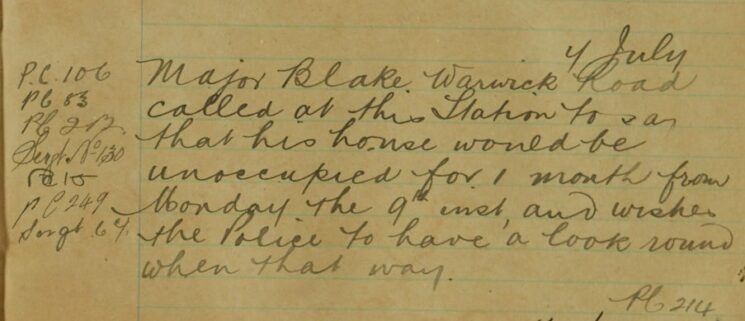 4 July
P.C. 106 Major Blake Warwick Road
PC 83 called at this Station to say
PC 212. that his house would be
Sergt No 130 unoccupied for 1 month from
PC 15
P C 249 Monday the 9th inst, and wishes
Sergt 67. the Police to have a look round
when that way.
PC 214